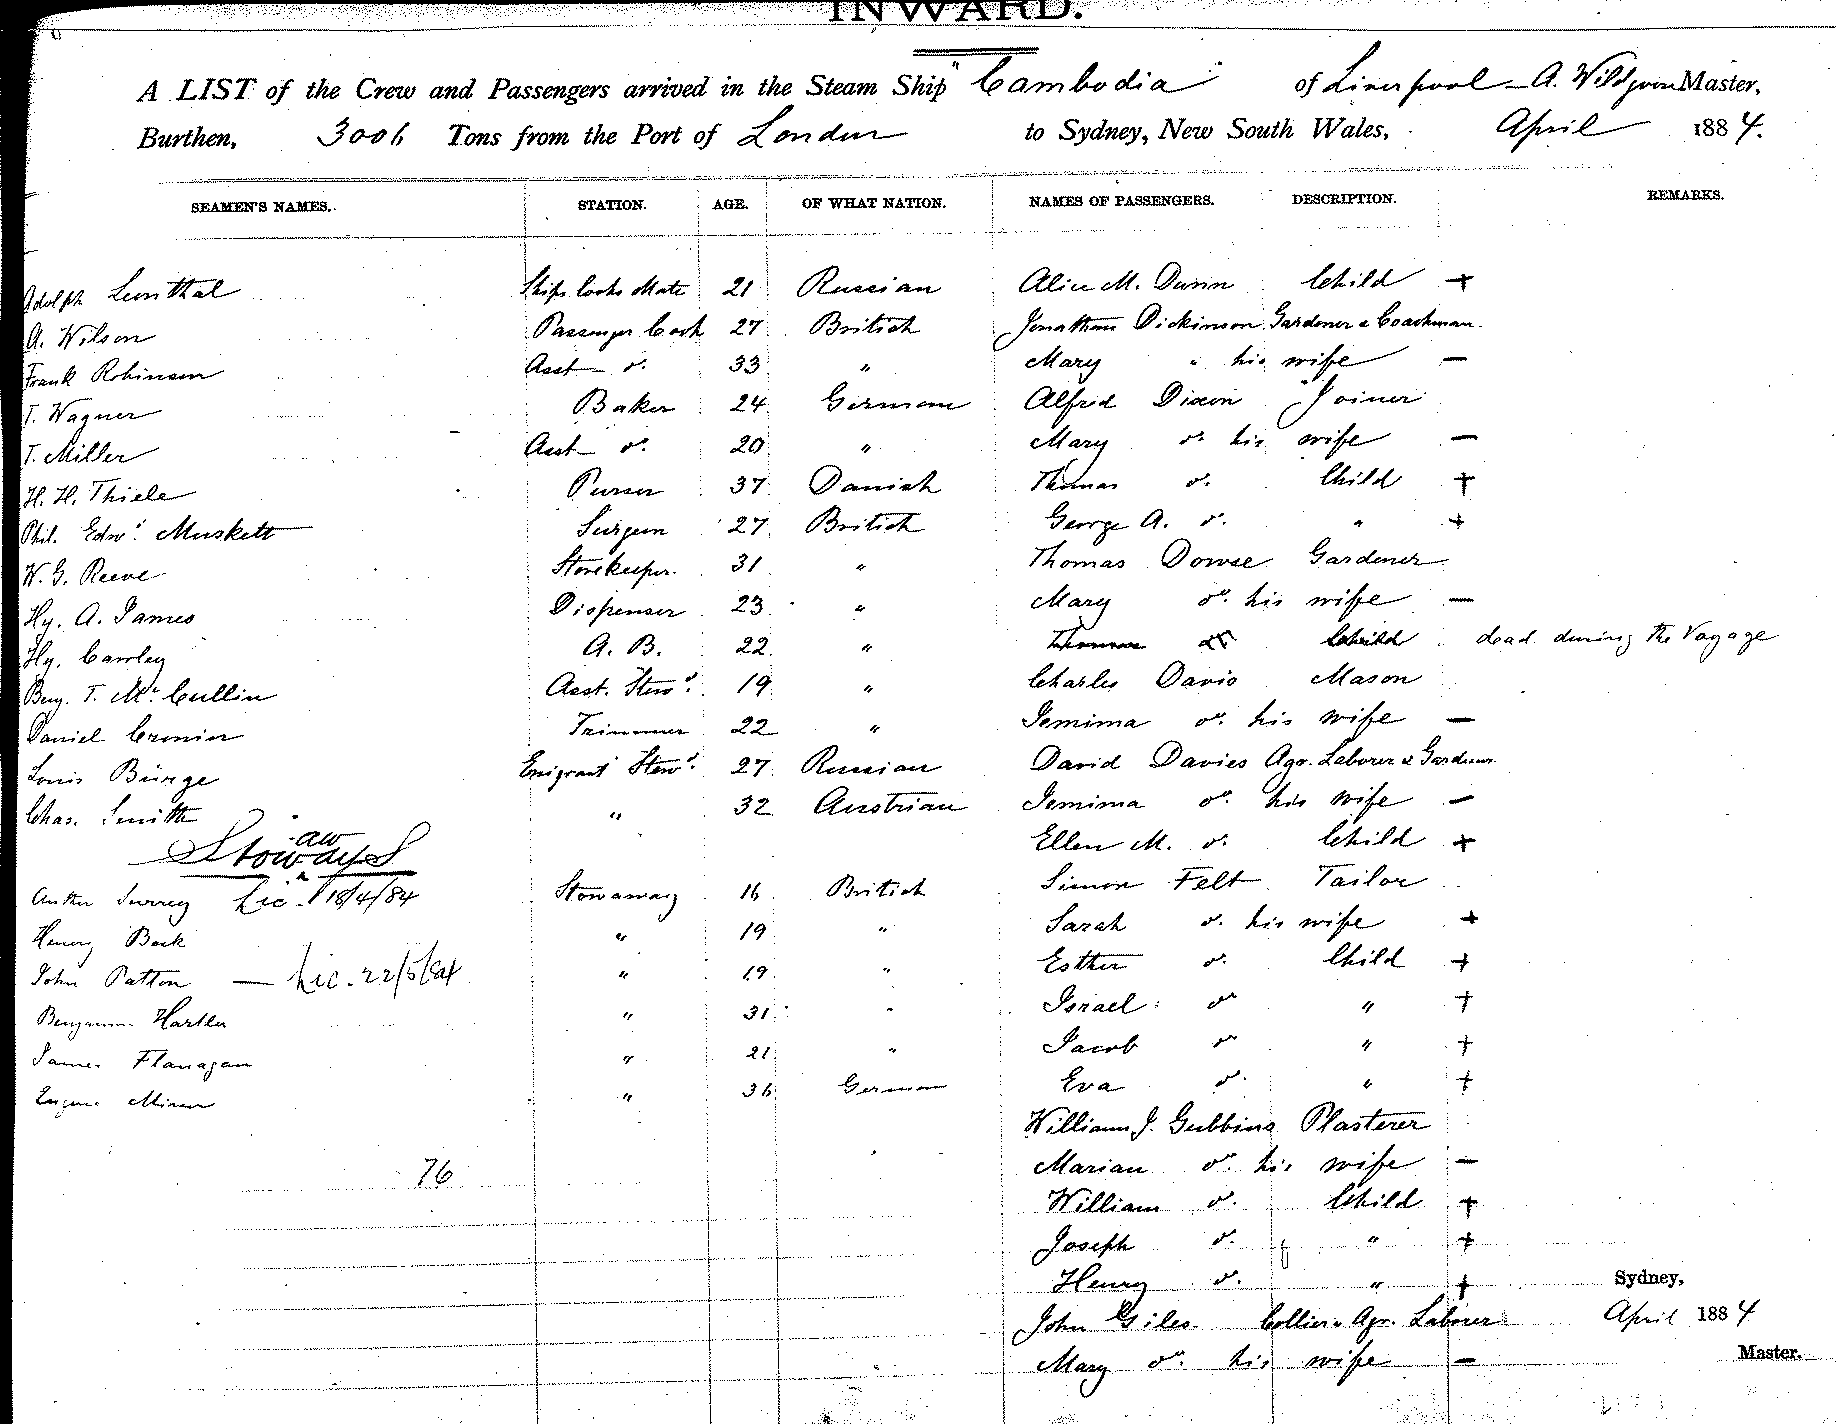 INWARD.
A LIST of the Crew and Passengers arrived in the Steam Ship "Cambodia" of Liverpool - A. Master,
Burthen, 3006 Tons from the Port of London to Sydney, New South Wales, April 1884.
SEAMEN'S NAMES. STATION. AGE. OF WHAT NATION. NAMES OF PASSENGERS. DESCRIPTION. REMARKS.
Adolph Ships Cooks Mate 21 Russian Alice M. Dunn Child +
A. Wilson Passenger Cook 27 British Jonathan Dickinson Gardener & Coachman
Frank Robinson Asst do. 33 " Mary " his wife —
T. Wagner Baker 24 German Alfred Dixon Joiner
T. Miller Asst do. 20 " Mary do. his wife —
H. H. Thiele Purser 37 Danish Thomas do. Child +
Phil. Edwd. Muskett Surgeon 27 British George A. do. " +
W. G. Reeve Storekeeper 31 " Thomas Dowse Gardener
Hy. A. James Dispenser 23 " Mary do. his wife —
Hy. Cawley A. B. 22 " Thomas do Child dead during the Voyage
Benj. T. Mc. Cullin Asst. Stewd. 19 " Charles Davis Mason
Daniel Cronin Trimmer 22 " Jemima do. his wife —
Louis Bünge Emigrant Stewd. 27 Russian David Davies Agr. Laborer & Gardener
Chas. Smith " 32 Austrian Jemima do. his wife —
Stowaways aw Ellen M. do. Child +
Simon Felt Tailor
Arthur Surrey Lic. 18/4/84 Stowaway 16 British Sarah do. his wife +
Henry Beck " 19 " Esther do. Child +
John Patton — Lic. 22/5/84 " 19 " Israel do " +
Benjamin " 31 " Jacob do " +
James Flanagan " 21 " Eva do. " +
Eugene " 36 German William J. Gubbins Plasterer
76 Marian do. his wife —
William do. Child +
Joseph do. " +
Henry do. " + Sydney,
John Giles Collier & Agr. Laborer April 1884
Mary do. his wife — Master.